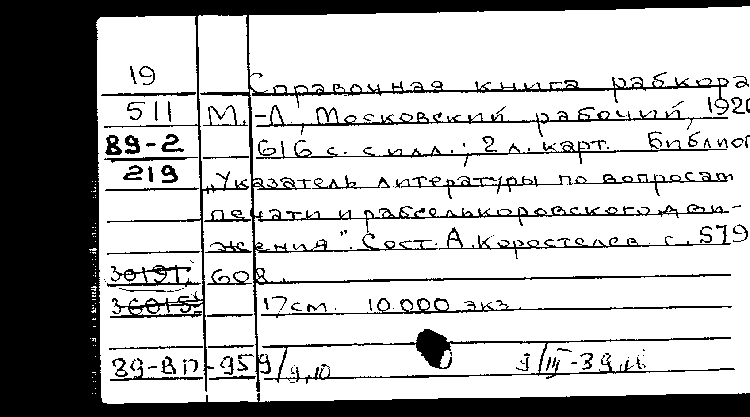 19 Справочная книга рабкора
511 М.-Л, Московский рабочий,
89-2 616 с. с илл.; 2 л. карт. Библиог
219 „Указатель литературы по вопросам
печати и рабселькоровского дви-
жения". Сост. А. Коростелев с. 579
30191. 608.
36015. 17 см. 10.000 экз.
39-ВП-959/9,10 9/III-39